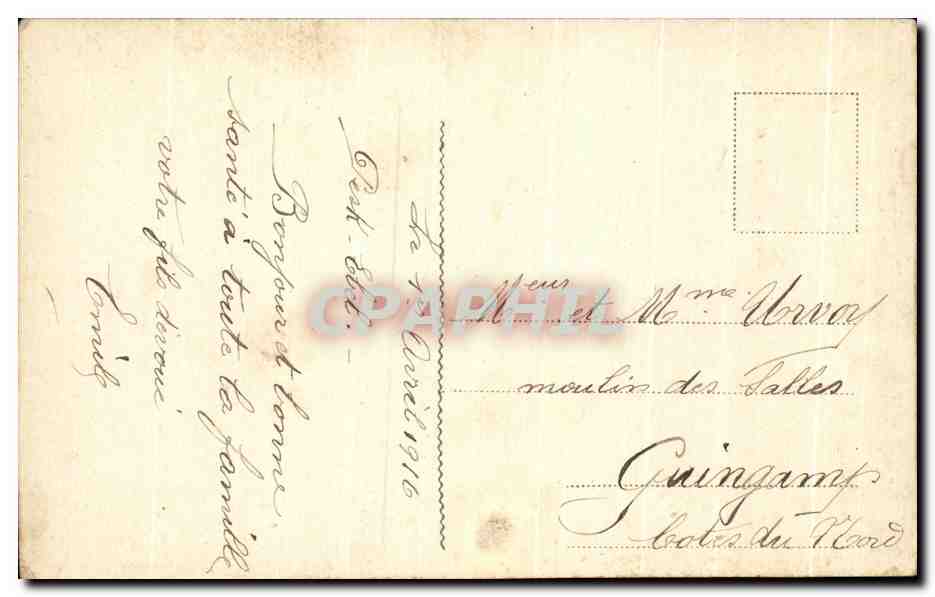 Le Avril 1916
Bonjour et bonne
santé a toute la famille
votre fils dévoué
Emile
Meur et Mme Urvoy
moulin des Salles
Guingamp
Cotes du Nord
CPAPHIL